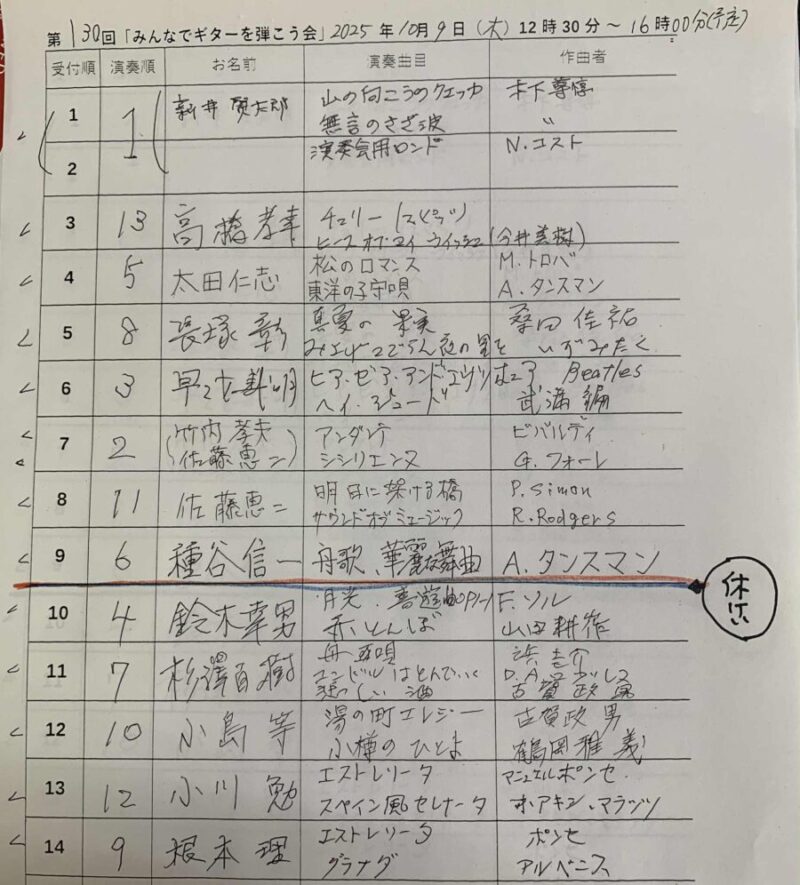 第130回「みんなでギターを弾こう会」2025年10月9日(木)12時30分～16時00分(予定)
受付順 演奏順 お名前 演奏曲目 作曲者
1 1 新井 賢太郎 山の向こうのクエッカ 木下尊惇
無言のさざ波 〃
2 演奏会用ロンド N.コスト
3 13 高橋孝幸 チェリー(スピッツ)
ピースオブマイウィッシュ(今井美樹)
4 5 太田仁志 松のロマンス M.トロバ
東洋の子守唄 A.タンスマン
5 8 長塚彰 真夏の果実 桑田佳祐
みあげてごらん夜の星を いずみたく
6 3 ヒア・ゼア・アンド・エヴリホェア Beatles
ヘイ・ジュード 武満編
7 2 (竹内孝夫 アンダンテ ビバルディ
佐藤恵二) シシリエンヌ G.フォーレ
8 11 佐藤恵二 明日に架ける橋 P.Simon
サウンドオブミュージック R.Rodgers
9 6 種谷信一 舟歌、華麗な舞曲 A.タンスマン
休けい
10 4 鈴木幸男 月光. F.ソル
赤とんぼ 山田耕筰
11 7 杉澤百樹 舟唄 浜圭介
コンドルはとんでいく
淋しい酒 古賀政男
12 10 小島等 湯の町エレジー 古賀政男
小樽のひとよ 鶴岡雅義
13 12 小川勉 エストレリータ マニュエルポンセ
スペイン風セレナータ ホアキン.マラッツ
14 9 根本理 エストレリータ ポンセ
グラナダ アルベニス